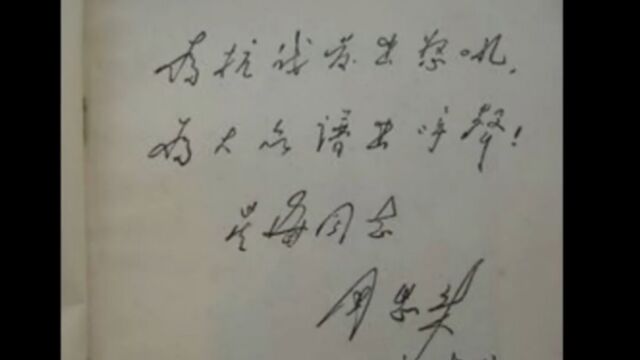 为抗战发出怒吼，
为大众谱出呼声！
星海同志
周恩来